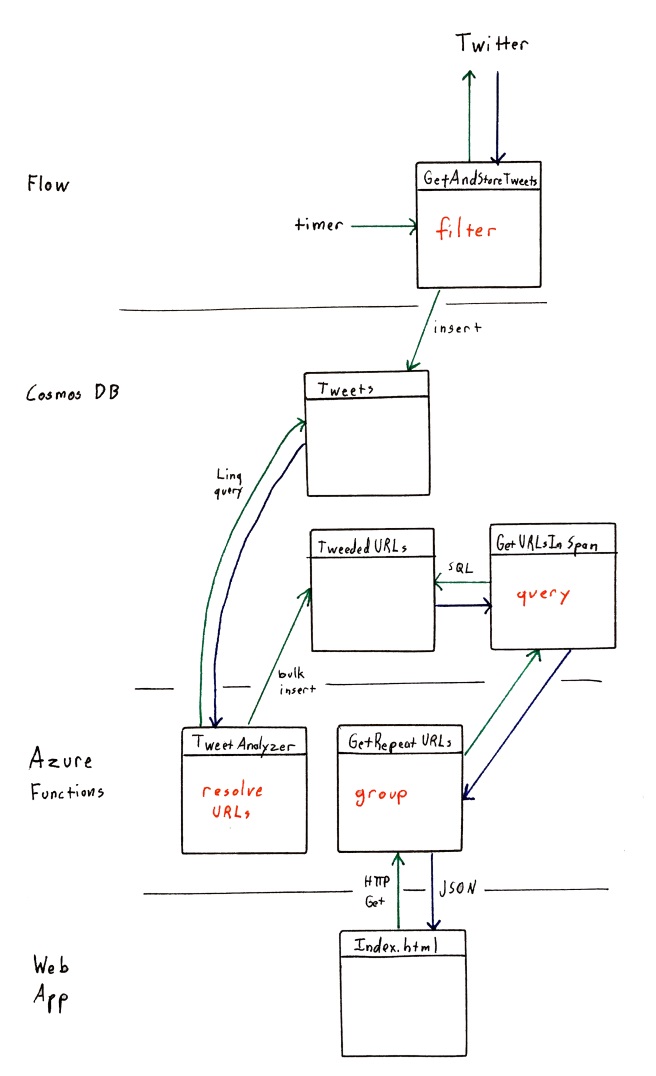 Twitter
Flow
GetAndStoreTweets
timer
filter
insert
Cosmos DB
Tweets
Linq
query
Tweeded URLs
GetURLsInSpan
SQL
query
bulk
insert
Azure
Functions
TweetAnalyzer
resolve
URLs
GetRepeat URLs
group
HTTP
Get
JSON
Web
App
Index.html